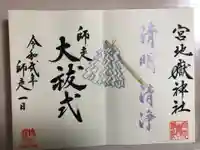 宮地嶽神社
清明 清浄
師走
大祓式
令和弐年
師走一日